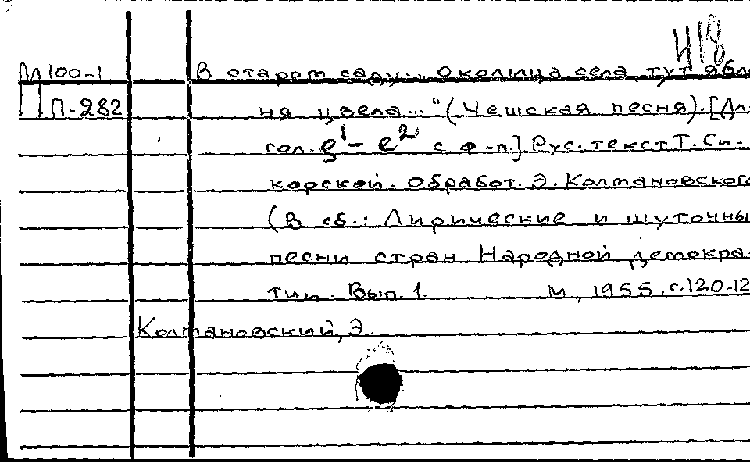 418
М100-1 В старом саду... Околица села, тут ябло
П-282 ня цвела..." (Чешская песня). [Дл
гол. e¹ - e² с ф-п.] Рус. текст Т. Си-
корской. Обработ. Э. Колмановского
(В сб.: Лирические и шуточны
песни стран Народной демокра-
тии. Вып. 1. М., 1955, с. 120-12
Колмановский, Э.